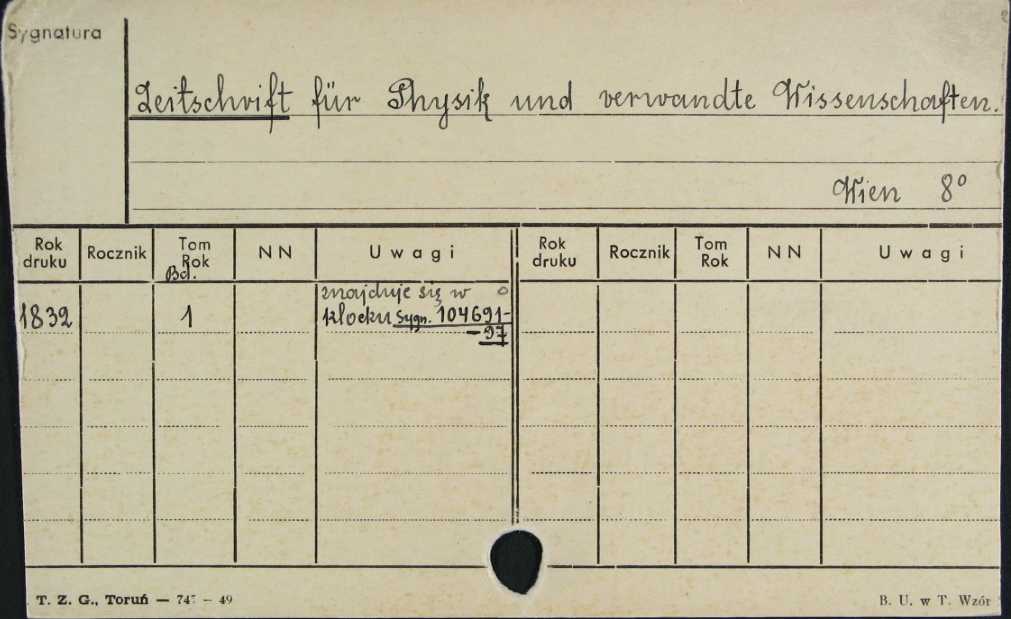 Sygnatura
Zeitschrift für Physik und verwandte Wissenschaften.
Wien 8°
Rok druku Rocznik Tom Rok Bd. NN Uwagi Rok druku Rocznik Tom Rok NN Uwagi
znajduje się w
1832 1 klocku Sygn. 104691-
-97
T. Z. G., Toruń — 747 — 49 B. U. w T. Wzór